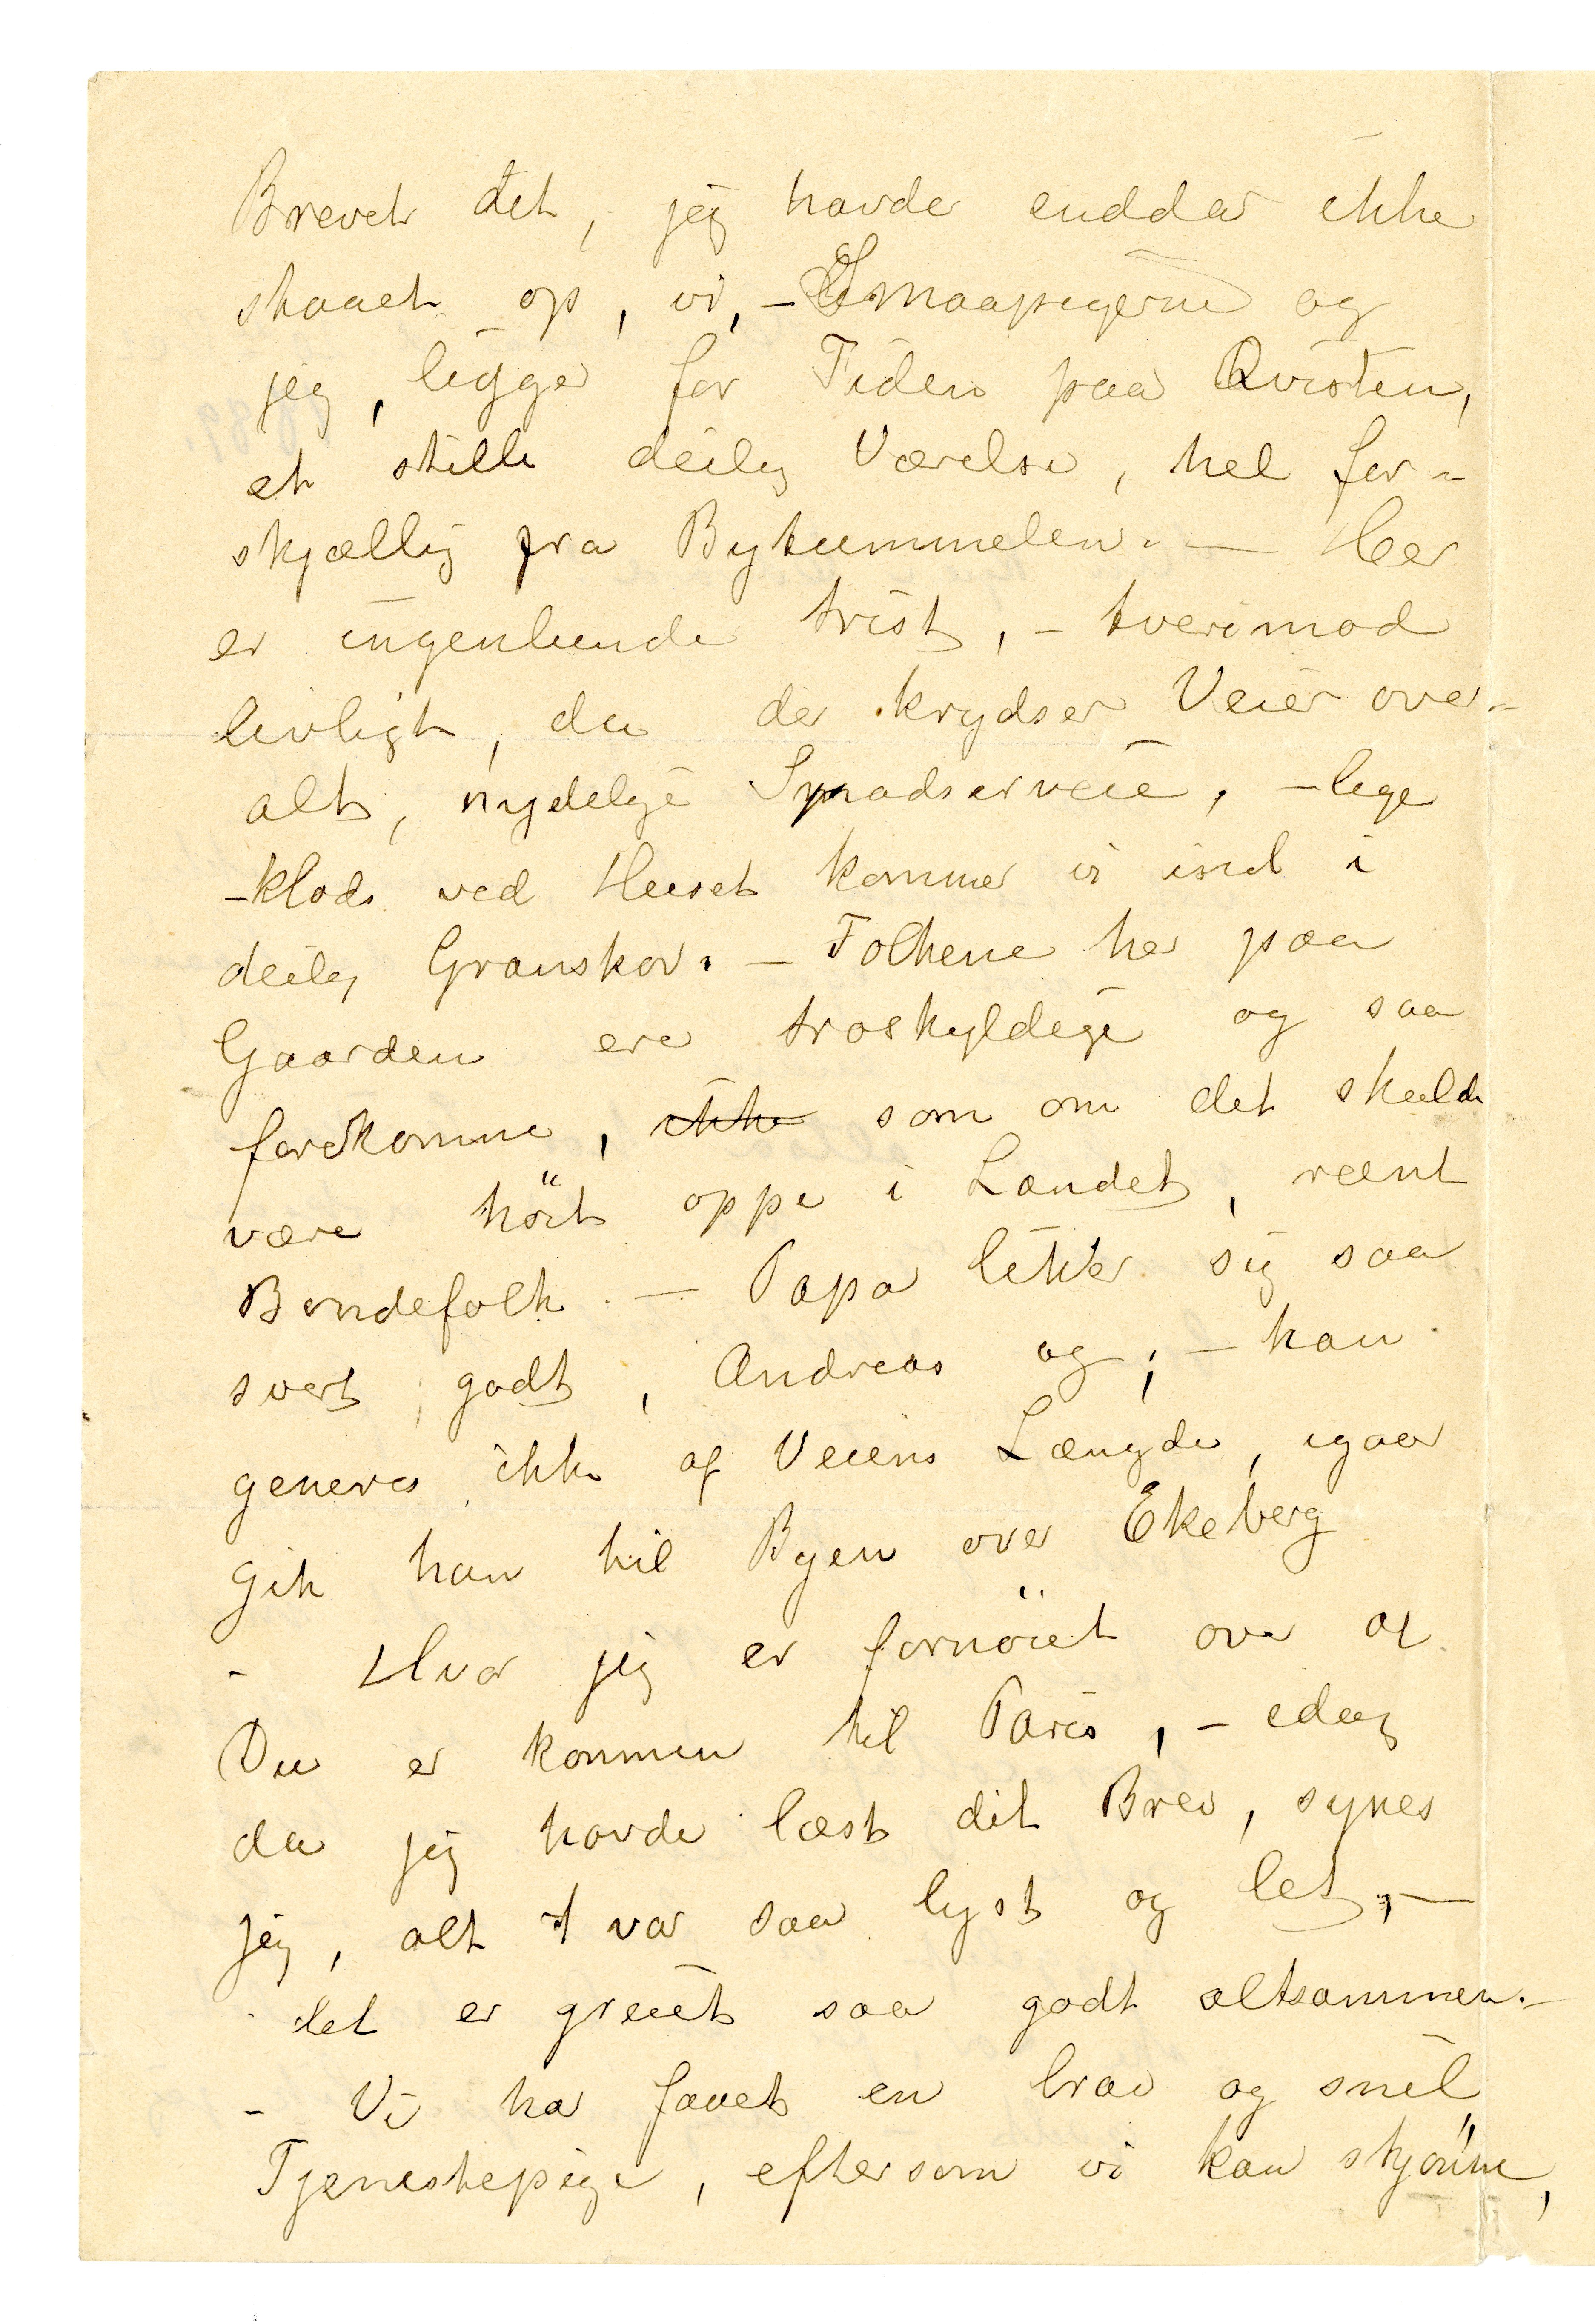 Brevet det, jeg havde enddar ikke
staaet op, vi, – Smaapigerne og
jeg, ligger for Tiden paa Qvisten,
et stille deilig Værelse, hel for-
skjællig fra Bytummelen. – Her
er ingenlunde trist, – tverimod
livligt, da der krydser Veier over-
alt, nydelige Spadserveie, – lige
– klods ved Huset kommer vi ind i
deilig Granskov. – Folkene her paa
Gaarden ere troskyldige og saa
forekomne, ikke som om det skulde
være höit oppe i Landet, reent
Bondefolk. – Papa liker sig saa
svert godt, Andreas og; – han
generes ikke af Veiens Længde, igaar
gik han til Byen over Ekeberg
– Hvor jeg er fornöiet over at
Du er kommen til Paris, – idag
da jeg havde læst dit Brev, synes
jeg, alt var saa lyst og let, –
det er greiet saa godt altsammen. –
– Vi ha faaet en brav og snil
Tjenestepige, eftersom vi kan skjönne,